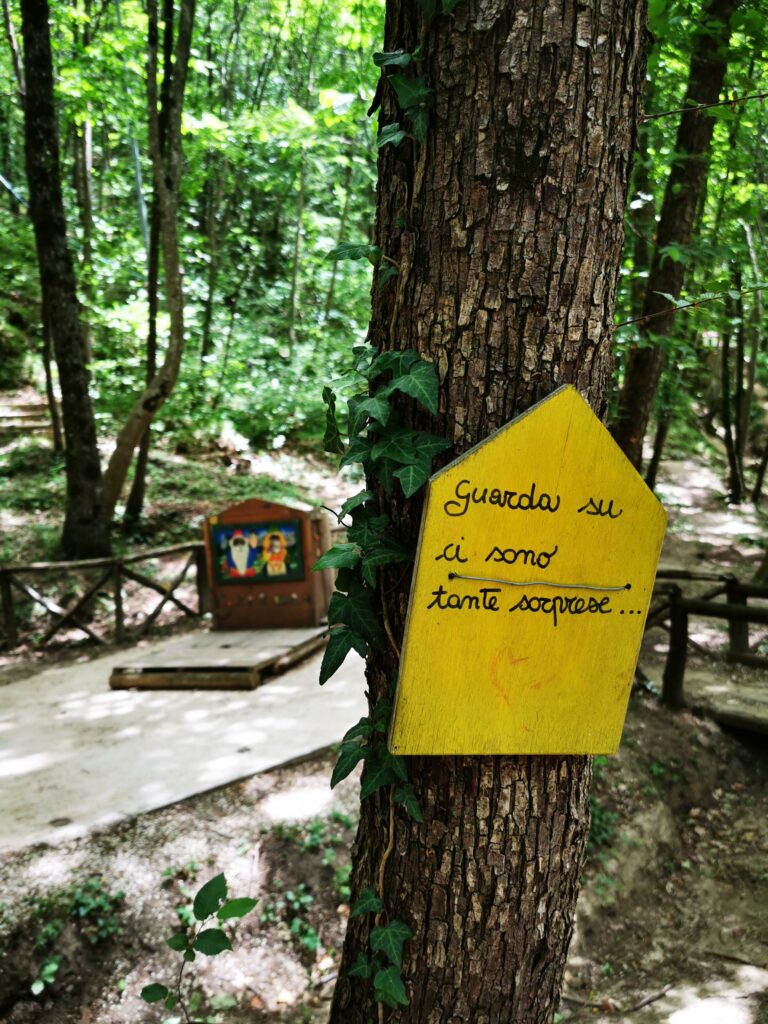 Guarda su
ci sono
tante sorprese...